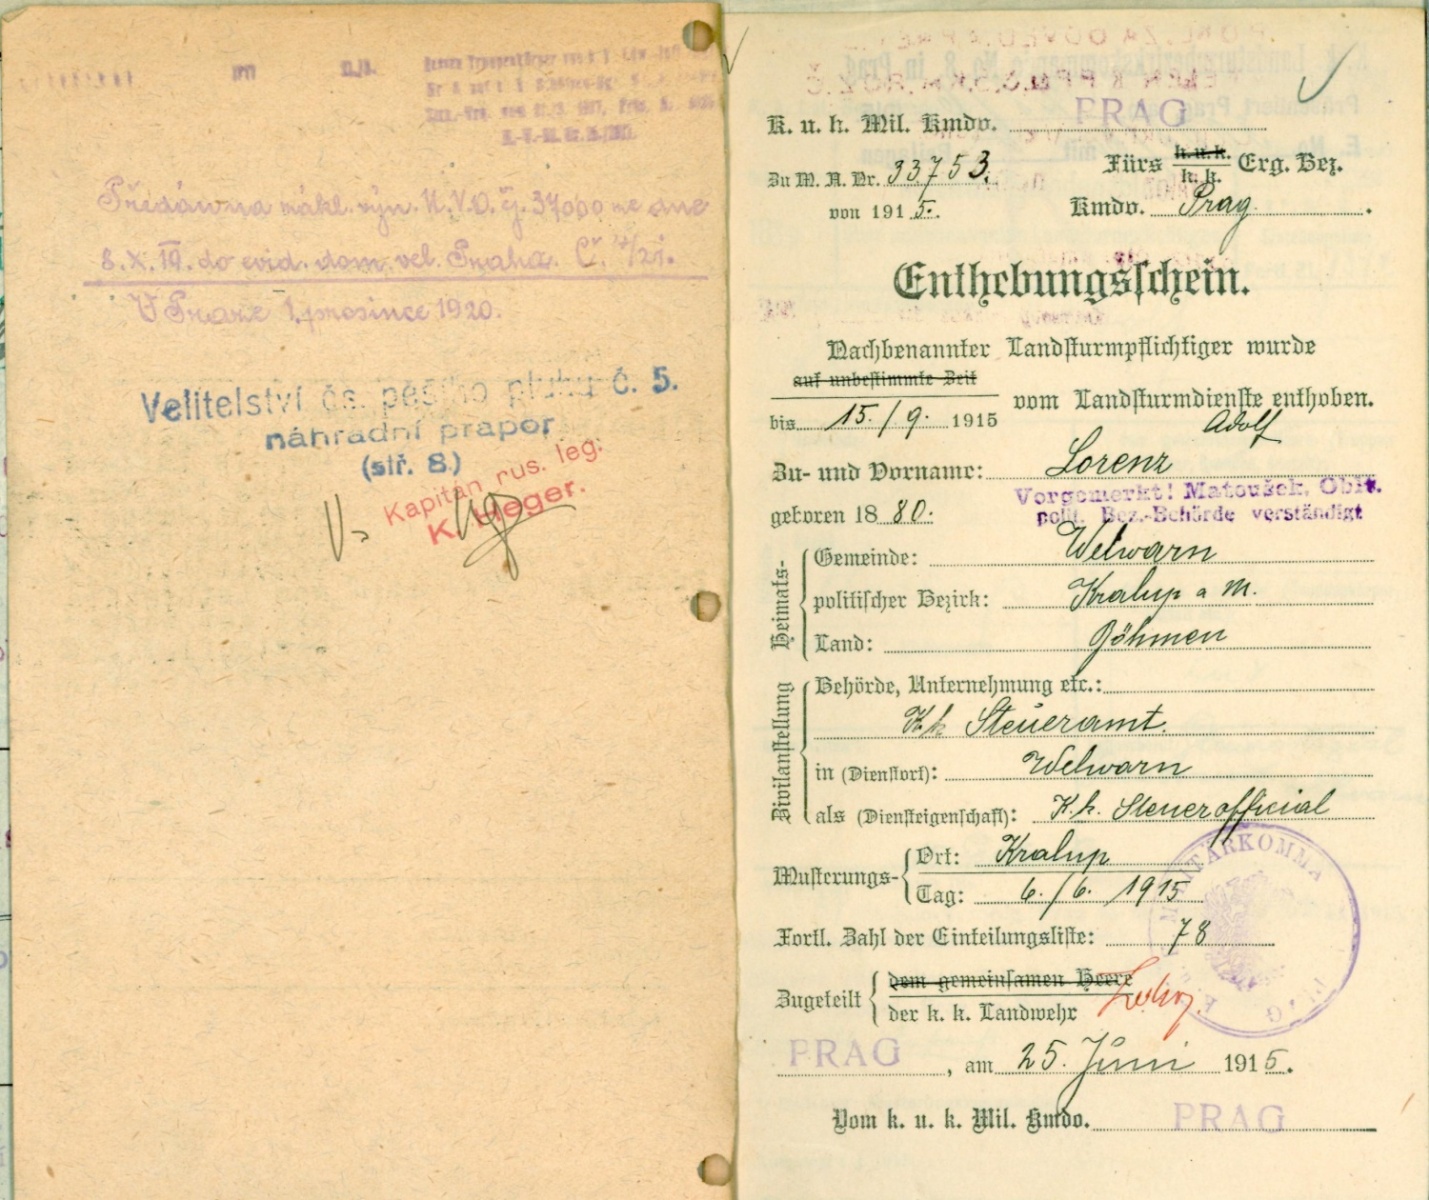 1917
Předáno na zákl. výn. M.N.O. čj. 37000 ze dne
8. X. 19. do evid. dom. vel. Praha. Č. 4/21.
V Praze 1. prosince 1920.
Velitelství čs. pěšího pluku č. 5.
náhradní prapor
(stř. 8.)
Kapitán rus. leg:
K. Heger.
PRAG
K. u. k. Mil. Kmdo.
Zu M. A. Nr. 33753.
von 1915.
Fürs k. u. k. Erg. Bez.
k. k.
Kmdo. Prag.
Enthebungsschein.
Nachbenannter Landsturmpflichtiger wurde
auf unbestimmte Zeit
bis 15./9. 1915 vom Landsturmdienste enthoben.
Adolf
Zu- und Vorname: Lorenz
Vorgemerkt! Matoušek, Oblt.
polit. Bez.-Behörde verständigt
geboren 1880.
Heimats-
Gemeinde: Welwarn
politischer Bezirk: Kralup a M.
Land: Böhmen
Zivilanstellung
Behörde, Unternehmung etc.:
K.k. Steueramt.
in (Dienstort): Welwarn
als (Diensteigenschaft): K.k. Steuerofficial
Musterungs-
Ort: Kralup
Tag: 6./6. 1915
MILITÄRKOMMA
PRAG
Fortl. Zahl der Einteilungsliste: 78
Zugeteilt
dem gemeinsamen Heere
der k. k. Landwehr
PRAG, am 25. Juni 1915.
Vom k. u. k. Mil. Kmdo. PRAG